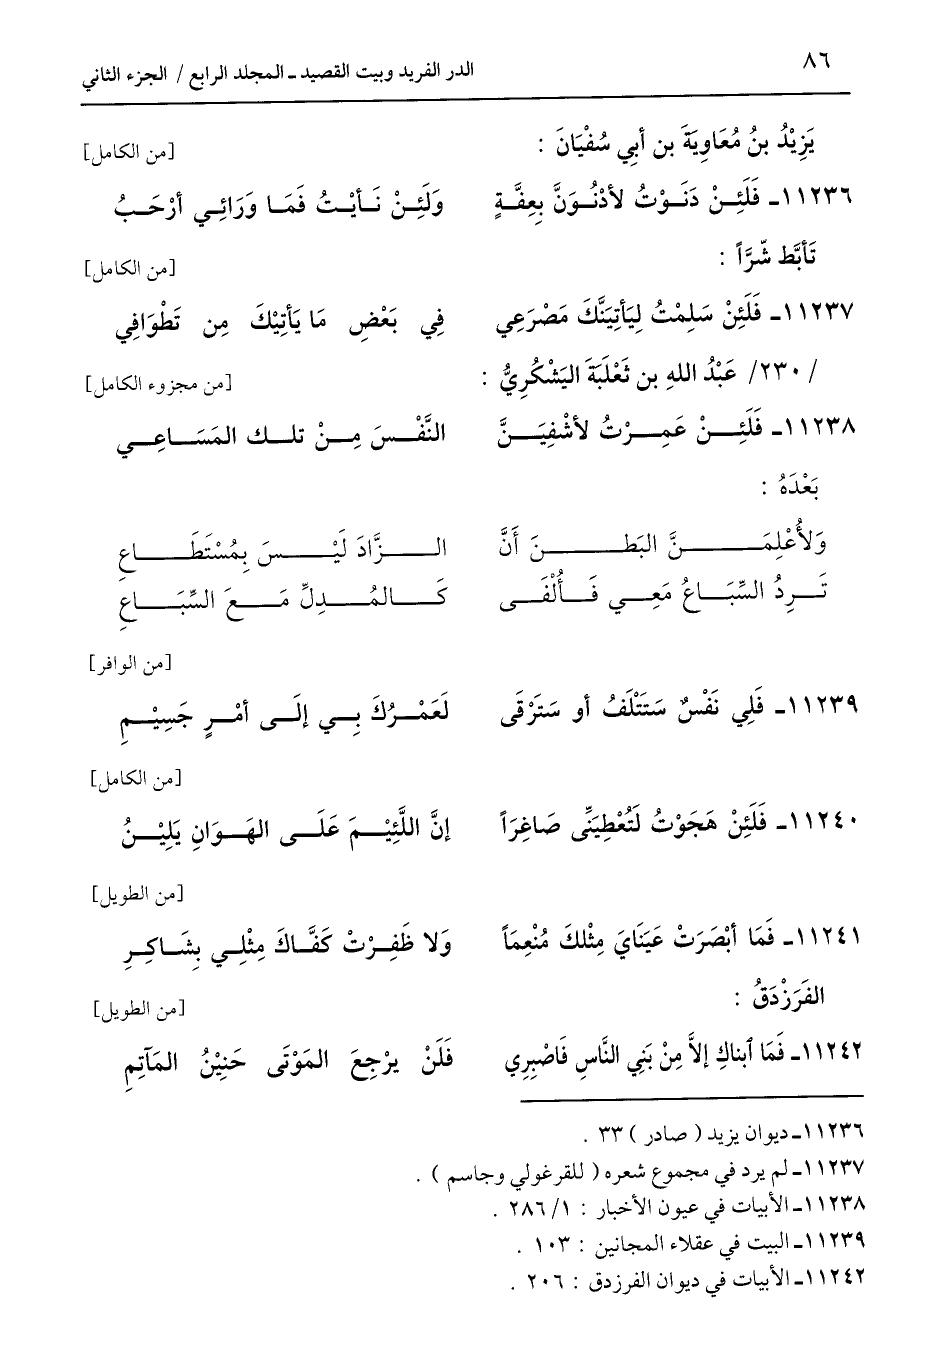 ٨٦
الدر الفريد وبيت القصيد ـ المجلد الرابع / الجزء الثاني
يَزِيْدُ بنُ مُعَاوِيَةَ بن أبي سُفْيَانَ : [من الكامل]
١١٢٣٦ـ فَلَئِـنْ دَنَـوْتُ لأدْنُـوَنَّ بِعِفَّـةٍ وَلَئِـنْ نَـأيْـتُ فَمَـا وَرَائِـي أرْحَـبُ
تَأبَّط شّرَّاً : [من الكامل]
١١٢٣٧ـ فَلَئِنْ سَلِمْتُ لِيَأتِيَنَّكَ مَصْرَعِي فِي بَعْضِ مَا يَأتِيْكَ مِن تَطْوَافِي
/ ٢٣٠/ عَبْدُ اللهِ بن ثَعْلَبَةَ اليَشْكُرِيُّ : [من مجزوء الكامل]
١١٢٣٨ـ فَلَئِـنْ عَمِـرْتُ لأشْفِيَـنَّ النَّفْـسَ مِـنْ تلـك المَسَـاعِـي
بَعْدَهُ :
وَلأُعْلِمَـنَّ البَطـنَ أَنَّ الـزَّادَ لَيْـسَ بِمُسْتَطَـاعِ
تَـرِدُ السِّبَـاعُ مَعِـي فَـأُلْفَـى كَـالمُـدِلِّ مَـعَ السِّبَـاعِ
[من الوافر]
١١٢٣٩ـ فَلِي نَفْسٌ سَتَتْلَفُ أو سَتَرْقَى لَعَمْـرُكَ بِـي إلَـى أمْـرٍ جَسِيْـمِ
[من الكامل]
١١٢٤٠ـ فَلَئِنْ هَجَوْتُ لَتُعْطِيَنِّى صَاغِرَاً إنَّ اللَّئِيْـمَ عَلَـى الهَـوَانِ يَلِيْـنُ
[من الطويل]
١١٢٤١ـ فَمَا أبْصَرَتْ عَيْنَايَ مِثْلكَ مُنْعِمَاً وَلا ظَفِـرَتْ كَفَّـاكَ مِثْلِـي بِشَـاكِـرِ
الفَرَزْدَقُ : [من الطويل]
١١٢٤٢ـ فَمَا ٱبناكِ إلاَّ مِنْ بَنِي النَّاسِ فَاصْبِرِي فَلَنْ يرْجِعَ المَوْتَى حَنِيْنُ المَآتِمِ
١١٢٣٦ـ ديوان يزيد ( صادر ) ٣٣ .
١١٢٣٧ـ لم يرد في مجموع شعره ( للقرغولي وجاسم ) .
١١٢٣٨ـ الأبيات في عيون الأخبار : ١/ ٢٨٦ .
١١٢٣٩ـ البيت في عقلاء المجانين : ١٠٣ .
١١٢٤٢ـ الأبيات في ديوان الفرزدق : ٢٠٦ .